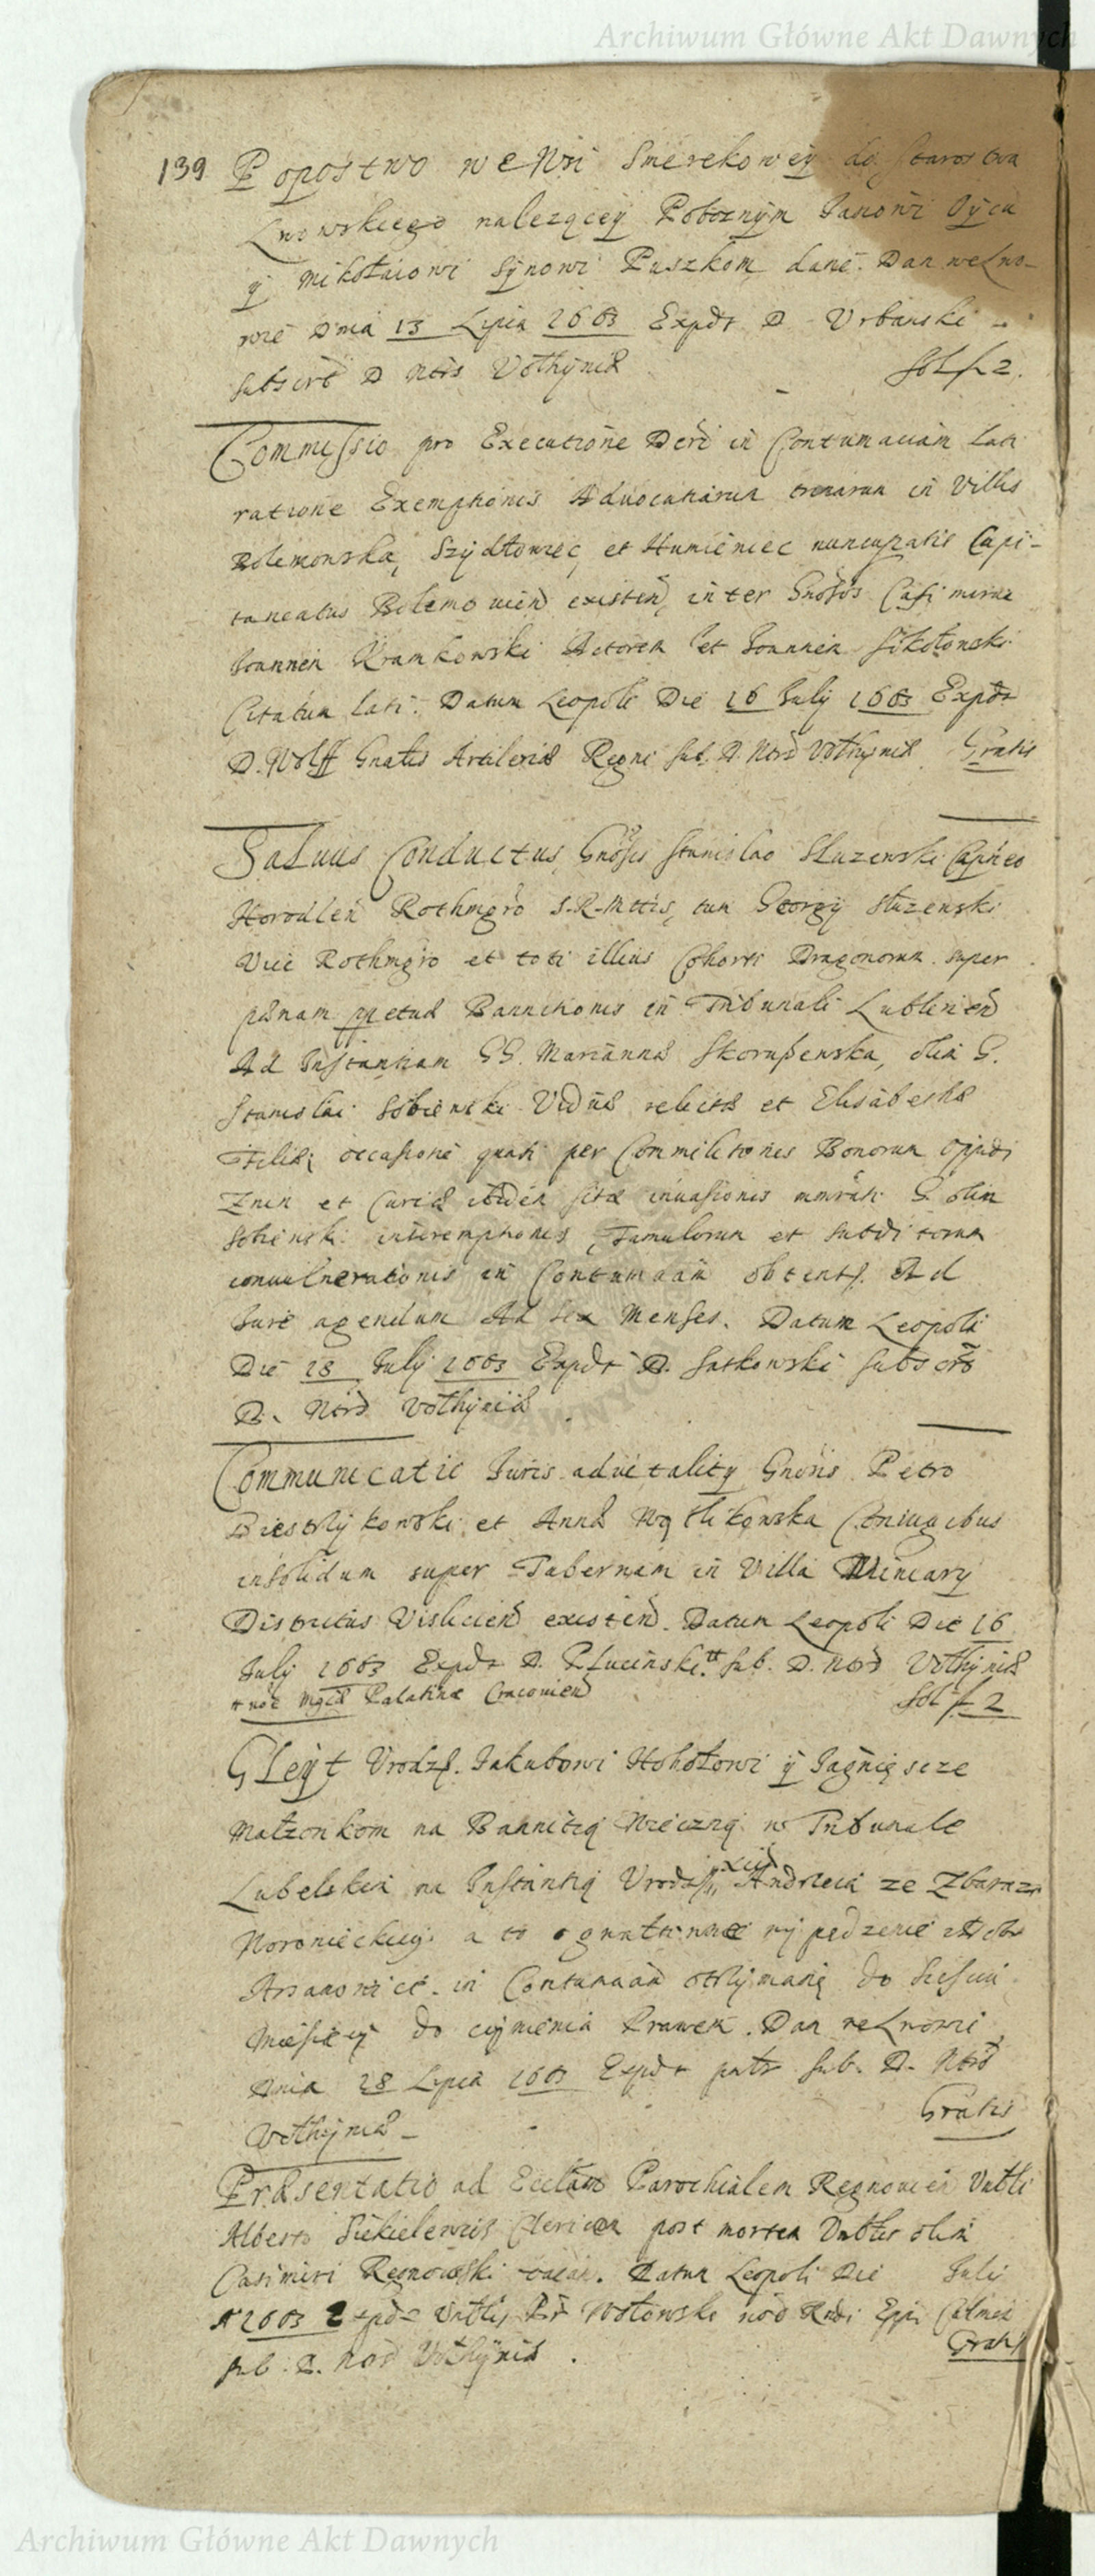 Archiwum Główne Akt Dawnych
139 Popostwo we Wsi Smerekowey do Starostwa
Lwowskiego nalezącey Poboznym Janowi Oycu
y Mikołaiowi Synowi Puszkom dane. Dan we Lwo-
wie Dnia 13 Lipca 1663 Expdt D Urbanski
subscrt D Ntrs Volhyniæ Sol f 2.
Commissio pro Executione Decri in Contumaciam lati
ratione Exemptionis Advocatiarum trinarum in Villis
Bolemowska, Szydłowiec, et Humieniec nuncupatis Capi-
taneatus Bolemovien existen, inter Gnosos Casimirum
Joannem Kramkowski Actorem et Joannem Sokołowski
Citatum lati. Datum Leopoli Die 16 July 1663 Expdt
D. Wolff Gnalis Artileriæ Regni sub. D. Ntrd Volhyniæ Gratis
Salvus Conductus Gnosis Stanislao Sluzewski Capneo
Horodlen Rothmgro S. R. Mttis, tum Georgy Sluzewski
Vice Rothmgro et toti illius Cohorti Dragonorum super
pænam ppetuæ Bannitionis in Tribunali Lublinen
Ad Instantiam GG. Mariannæ Skorupenska, olim G.
Stanislai Sobienski Viduæ relictæ et Elisabethæ
Filiæ, occasione quasi per Commilitones Bonorum Oppidi
Znin et Curiæ ibidem sitæ invasionis mmrati G. olim
Sobienski interemptionis, Famulorum et subditorum
convulnerationis in Contumaciam obtent. Ad
Jure agendum Ad sex Menses. Datum Leopoli
Die 18 July 1663 Expdt D. Satkowski subscrt
D. Ntrd Volhyniæ
Communicatio Juris advitality Gnosis Petro
Biestrzykowski et Annæ Wątlikowska Coniugibus
insolidum super Tabernam in Villa Winiary
Districtus Vislicien existen. Datum Leopoli Die 16
July 1663 Expdt D. Płucinski sub. D. Ntrd Volhyniæ
noe Mgcæ Palatinæ Cracovien Sol f 2
Gleyt Urodz. Jakubowi Hohołowi y Jagnięszce
Małzonkom na Bannitią Wieczną w Tribunale
Lubelskim na Instantią Urodz. Andrzeia ze Zbaraza
Woronieckiey a to o gwałtowne wypędzenie z Dobr
in Contumaciam otrzymaną do Sześciu
Miesięcy do czynienia Prawem. Dan we Lwowi
Dnia 18 Lipca 1663 Expdt patr sub. D. Ntrd
Volhyniæ Gratis
Præsentatio ad Ecclam Parochialem Regnovien Vnbli
Alberto Siekielewicz Clericum post mortem Vnblis olim
Casimiri Regnowski vacan. Datum Leopoli Die Juli
A 1663 Expdt Vnblis Pr Wołowski noe Rndi Eppi Culmen
sub. D. Nod Volhyniæ. Gratis
Archiwum Główne Akt Dawnych